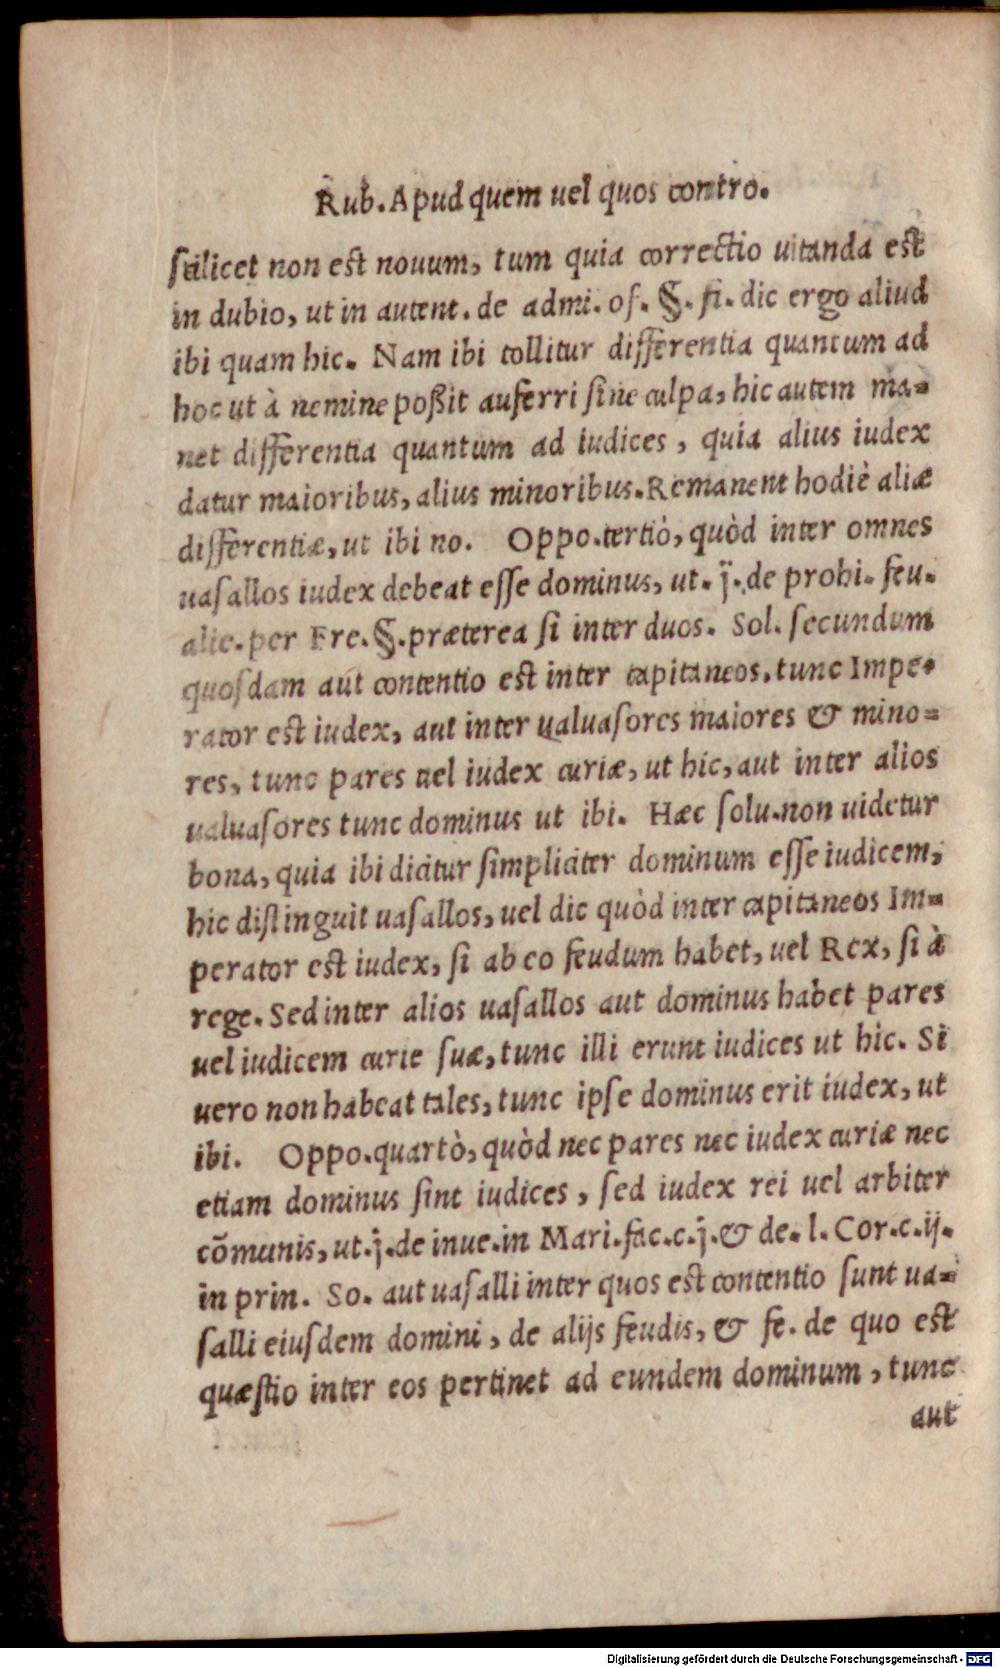 Rub. Apud quem uel quos contro.
scilicet non est nouum, tum quia correctio uitanda est
in dubio, ut in autent. de admi. of. §. fi. dic ergo aliud
ibi quam hic. Nam ibi tollitur differentia quantum ad
hoc ut à nemine poßit auferri sine culpa, hic autem ma-
net differentia quantum ad iudices, quia alius iudex
datur maioribus, alius minoribus. Remanent hodiè aliæ
differentiæ, ut ibi no. Oppo. tertiò, quòd inter omnes
uasallos iudex debeat esse dominus, ut. ij. de prohi. feu.
alie. per Fre. §. præterea si inter duos. Sol. secundum
quosdam aut contentio est inter capitaneos, tunc Impe-
rator est iudex, aut inter ualuasores maiores & mino-
res, tunc pares uel iudex curiæ, ut hic, aut inter alios
ualuasores tunc dominus ut ibi. Hæc solu. non uidetur
bona, quia ibi dicitur simpliciter dominum esse iudicem,
hic distinguit uasallos, uel dic quòd inter capitaneos Im-
perator est iudex, si ab eo feudum habet, uel Rex, si à
rege. Sed inter alios uasallos aut dominus habet pares
uel iudicem curie suæ, tunc illi erunt iudices ut hic. Si
uero non habeat tales, tunc ipse dominus erit iudex, ut
ibi. Oppo. quartò, quòd nec pares nec iudex curiæ nec
etiam dominus sint iudices, sed iudex rei uel arbiter
cõmunis, ut. j. de inue. in Mari. fac. c. j. & de. l. Cor. c. ij.
in prin. So. aut uasalli inter quos est contentio sunt ua-
salli eiusdem domini, de alijs feudis, & fe. de quo est
quæstio inter eos pertinet ad eundem dominum, tunc
aut
Digitalisierung gefördert durch die Deutsche Forschungsgemeinschaft - DFG